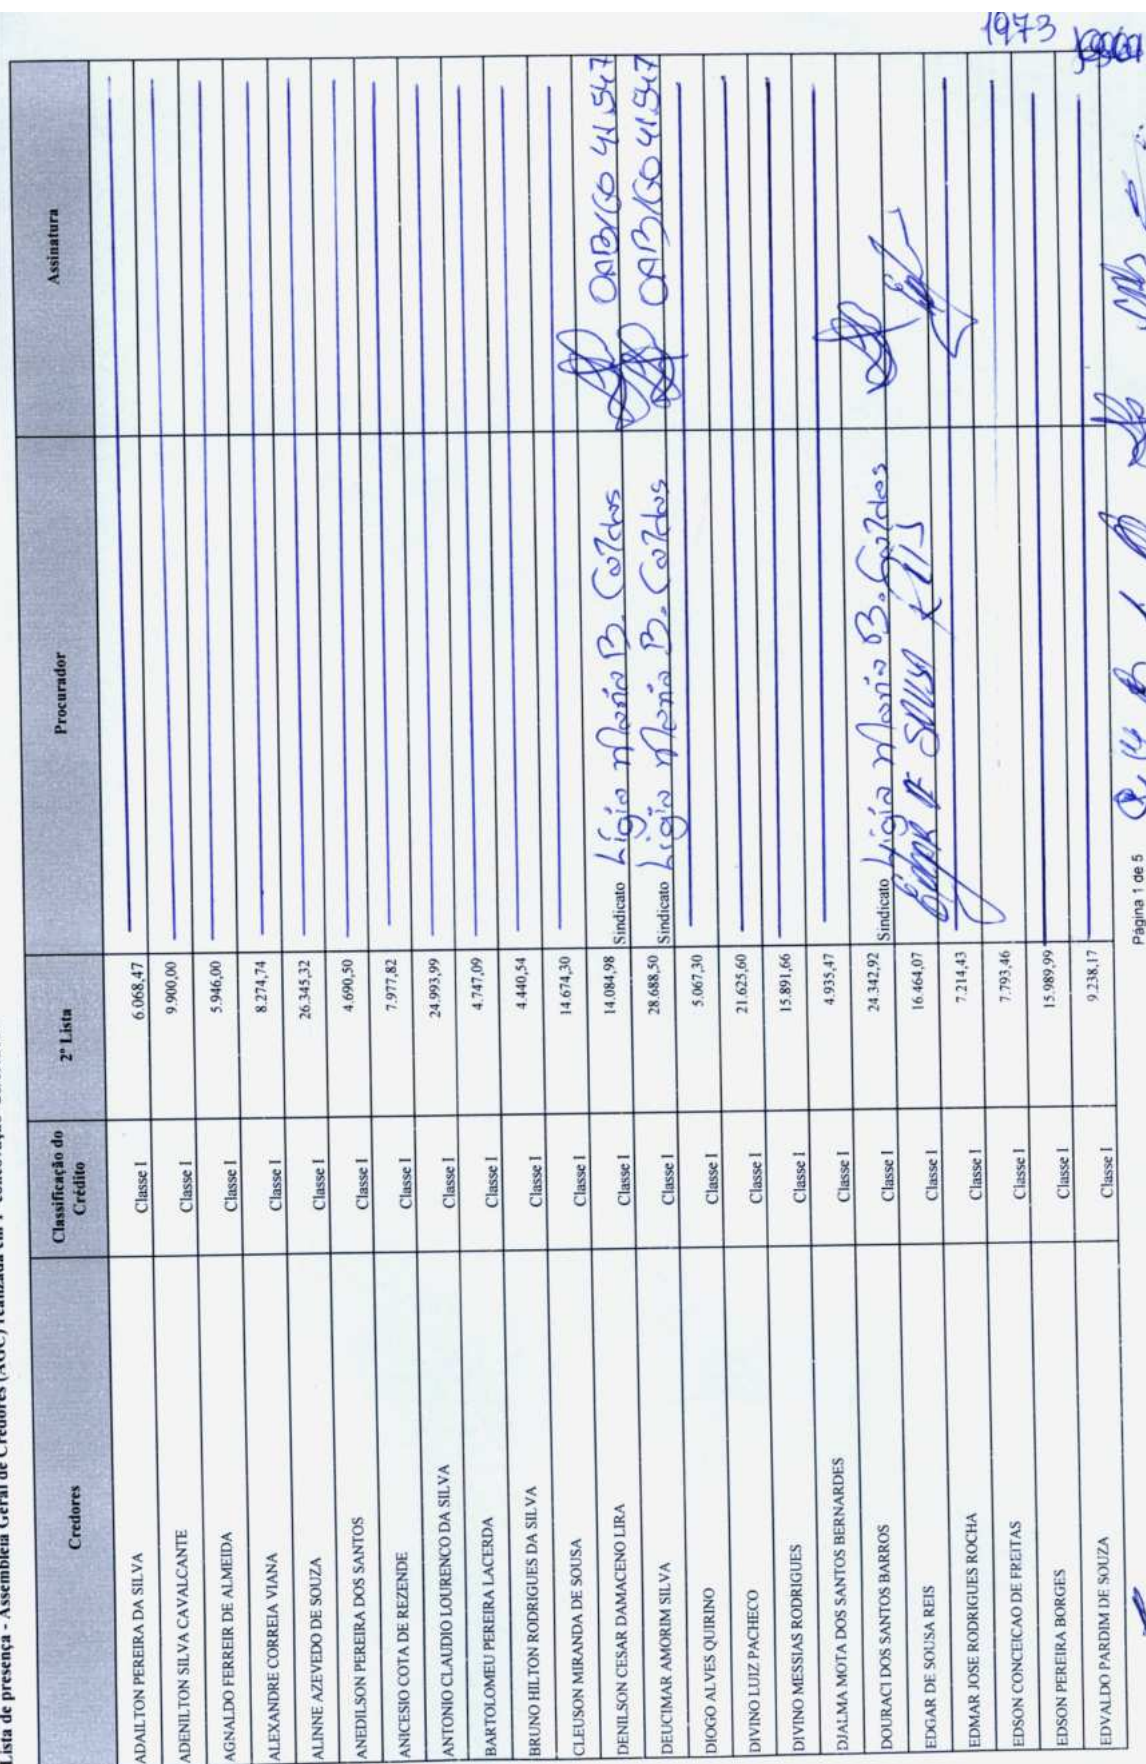 1973
Lista de presença - Assembleia Geral de Credores (AGC) realizada em 1ª
Credores Classificação do Crédito 2ª Lista Procurador Assinatura
ADAILTON PEREIRA DA SILVA Classe I 6.068,47
ADENILTON SILVA CAVALCANTE Classe I 9.900,00
AGNALDO FERREIR DE ALMEIDA Classe I 5.946,00
ALEXANDRE CORREIA VIANA Classe I 8.274,74
ALINNE AZEVEDO DE SOUZA Classe I 26.345,32
ANEDILSON PEREIRA DOS SANTOS Classe I 4.690,50
ANICESIO COTA DE REZENDE Classe I 7.977,82
ANTONIO CLAUDIO LOURENCO DA SILVA Classe I 24.993,99
BARTOLOMEU PEREIRA LACERDA Classe I 4.747,09
BRUNO HILTON RODRIGUES DA SILVA Classe I 4.440,54
CLEUSON MIRANDA DE SOUSA Classe I 14.674,30
DENILSON CESAR DAMACENO LIRA Classe I 14.084,98 Sindicato Lígia Maria B. Caldas OAB/GO 41.547
DEUCIMAR AMORIM SILVA Classe I 28.688,50 Sindicato Lígia Maria B. Caldas OAB/GO 41.547
DIOGO ALVES QUIRINO Classe I 5.067,30
DIVINO LUIZ PACHECO Classe I 21.625,60
DIVINO MESSIAS RODRIGUES Classe I 15.891,66
DJALMA MOTA DOS SANTOS BERNARDES Classe I 4.935,47
DOURACI DOS SANTOS BARROS Classe I 24.342,92 Sindicato Lígia Maria B. Caldas
EDGAR DE SOUSA REIS Classe I 16.464,07
EDMAR JOSE RODRIGUES ROCHA Classe I 7.214,43
EDSON CONCEICAO DE FREITAS Classe I 7.793,46
EDSON PEREIRA BORGES Classe I 15.989,99
EDVALDO PARDIM DE SOUZA Classe I 9.238,17
Página 1 de 5